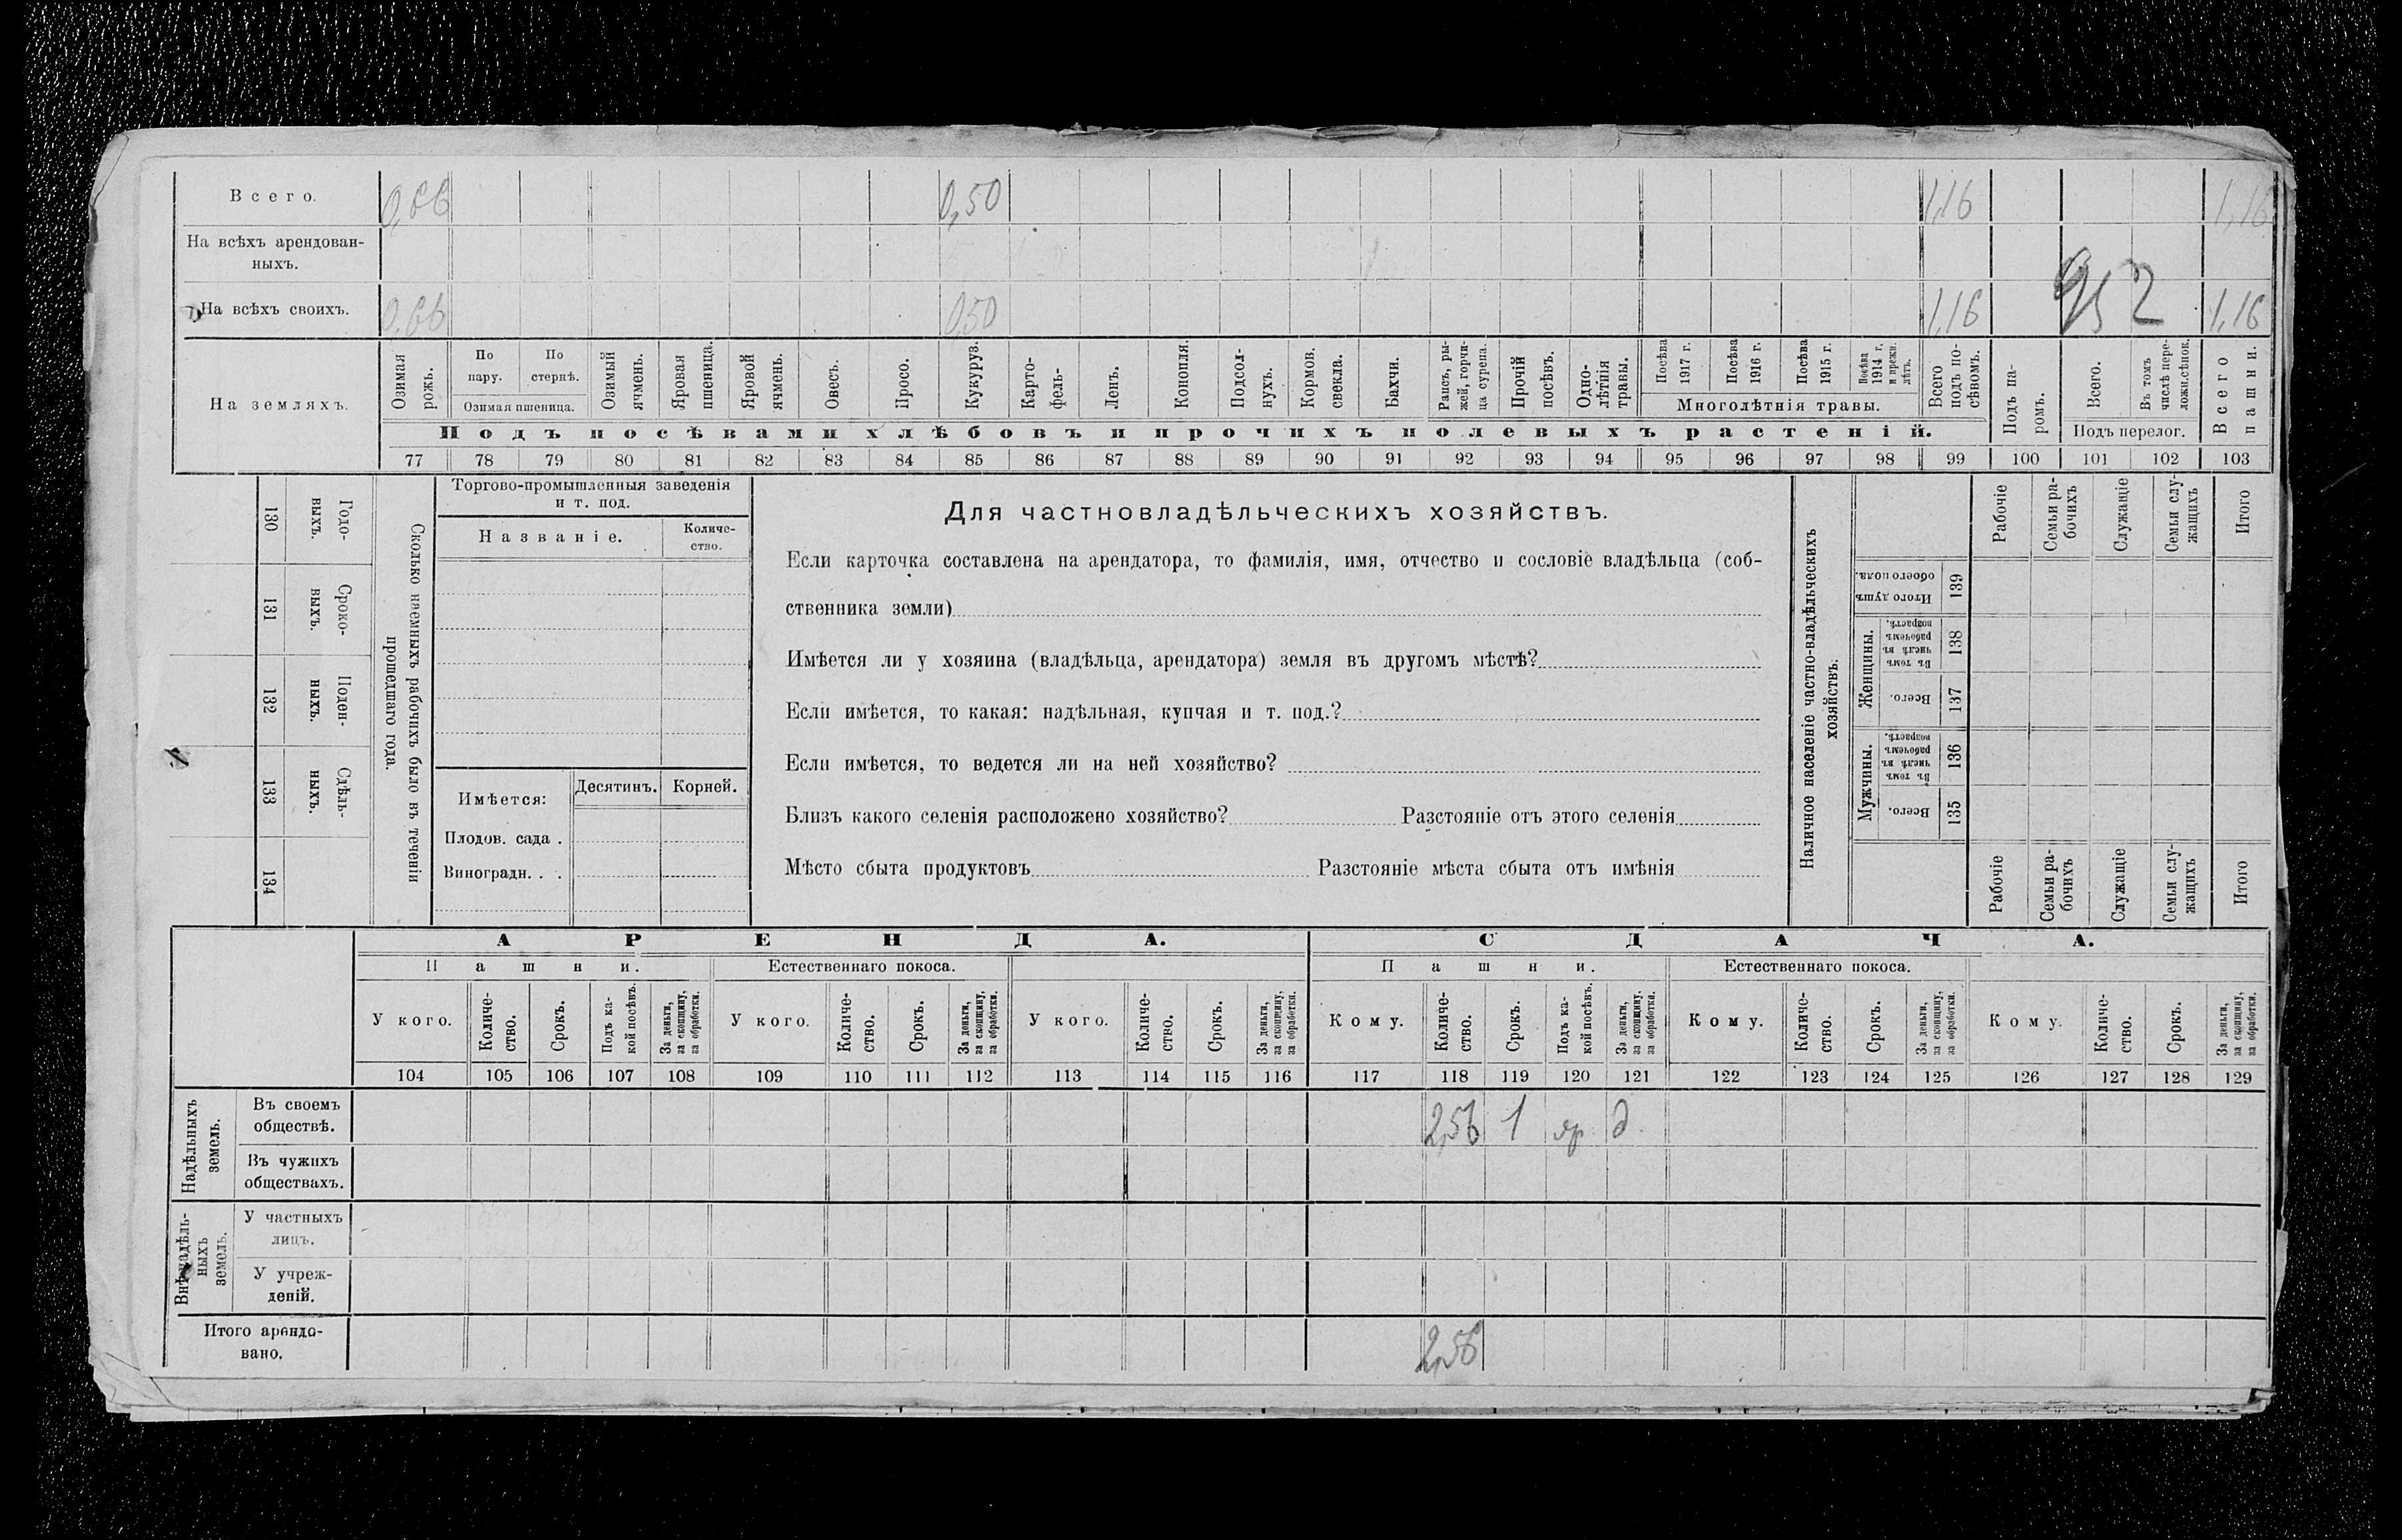 Всего. 0,66 0,50 1,16 1,16
На всѣхъ арендован-
ныхъ.
952
На всѣхъ своихъ. 0,66 0,50 1,16 1,16
На земляхъ.
Озимая рожь.
По пару.
По стернѣ.
Озимая пшеница.
Озимый ячмень.
Яровая пшеница.
Яровой ячмень.
Овесъ.
Просо.
Кукуруз.
Карто-
фель-
Ленъ.
Конопля.
Подсол-
нухъ.
Кормов.
свекла.
Бахчи.
Рапсъ, ры-
жей, горчи-
ца сурепа.
Прочій
посѣвъ.
Одно-
лѣтнія
травы.
Посѣва
1917 г.
Посѣва
1916 г.
Посѣва
1915 г.
Посѣва
1914 г.
и прежн.
лѣтъ.
Многолѣтнія травы.
Всего
подъ по-
сѣвомъ.
Подъ па-
ромъ.
Всего.
Въ томъ
числѣ пере-
ложн.сѣнок.
Подъ перелог.
Всего
пашни.
Подъ посѣвами хлѣбовъ и прочихъ полевыхъ растеній.
77 78 79 80 81 82 83 84 85 86 87 88 89 90 91 92 93 94 95 96 97 98 99 100 101 102 103
130 Годо-
выхъ.
131 Сроко-
выхъ.
132 Поден-
ныхъ.
133 Сдѣль-
ныхъ.
134
Сколько наемныхъ рабочихъ было въ теченіи
прошедшаго года.
Торгово-промышленныя заведенія
и т. под.
Названіе.
Количе-
ство.
Имѣется: Десятинъ. Корней.
Плодов. сада .
Виноградн. . .
Для частновладѣльческихъ хозяйствъ.
Если карточка составлена на арендатора, то фамилія, имя, отчество и сословіе владѣльца (соб-
ственника земли)
Имѣется ли у хозяина (владѣльца, арендатора) земля въ другомъ мѣстѣ?
Если имѣется, то какая: надѣльная, купчая и т. под.?
Если имѣется, то ведется ли на ней хозяйство?
Близъ какого селенія расположено хозяйство? Разстояніе отъ этого селенія
Мѣсто сбыта продуктовъ Разстояніе мѣста сбыта отъ имѣнія
Наличное населеніе частно-владѣльческихъ
хозяйствъ.
Рабочіе
Семьи ра-
бочихъ
Служащіе
Семьи слу-
жащихъ
Итого
Итого душъ
обоего пола.
139
Женщины.
Въ томъ
числѣ въ
рабочемъ
возрастѣ.
138
Всего.
137
Мужчины.
Въ томъ
числѣ въ
рабочемъ
возрастѣ.
136
Всего.
135
Рабочіе
Семьи ра-
бочихъ
Служащіе
Семьи слу-
жащихъ
Итого
АРЕНДА. СДАЧА.
Пашни. Естественнаго покоса. Пашни. Естественнаго покоса.
У кого.
Количе-
ство.
Срокъ.
Подъ ка-
кой посѣвъ.
За деньги,
за скопщину,
за обработки.
У кого.
Количе-
ство.
Срокъ.
За деньги,
за скопщину,
за обработки.
У кого.
Количе-
ство.
Срокъ.
За деньги,
за скопщину,
за обработки.
Кому.
Количе-
ство.
Срокъ.
Подъ ка-
кой посѣвъ.
За деньги,
за скопщину,
за обработки.
Кому.
Количе-
ство.
Срокъ.
За деньги,
за скопщину,
за обработки.
Кому.
Количе-
ство.
Срокъ.
За деньги,
за скопщину,
за обработки.
104 105 106 107 108 109 110 111 112 113 114 115 116 117 118 119 120 121 122 123 124 125 126 127 128 129
Надѣльныхъ
земель.
Въ своемъ
обществѣ. 2,56 1 яр д
Въ чужихъ
обществахъ.
Внѣнадѣль-
ныхъ
земель.
У частныхъ
лицъ.
У учреж-
деній.
Итого арендо-
вано. 2,56